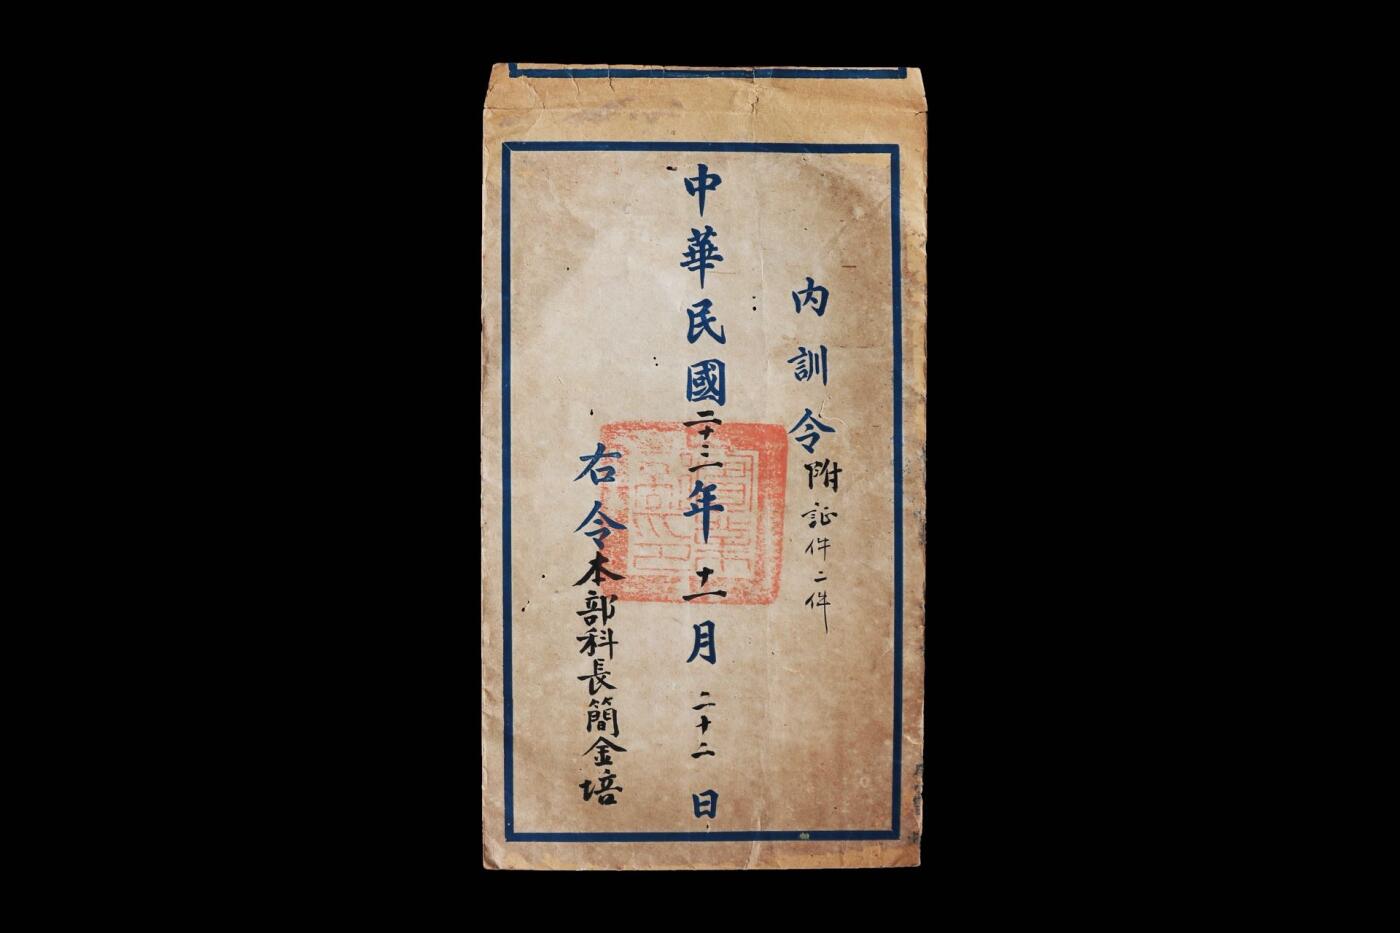 內訓令附証件二件
中華民國二十三年十一月二十二日
右令本部科長簡金培